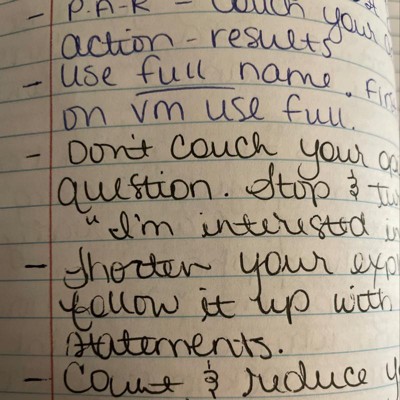 - P.A.R - Couch your
action - results
- Use full name. Fir
on vm use full.
- Don't couch your
question. Stop & tu
"I'm interested i
- Shorten your exp
follow it up with
statements.
- Count & reduce y